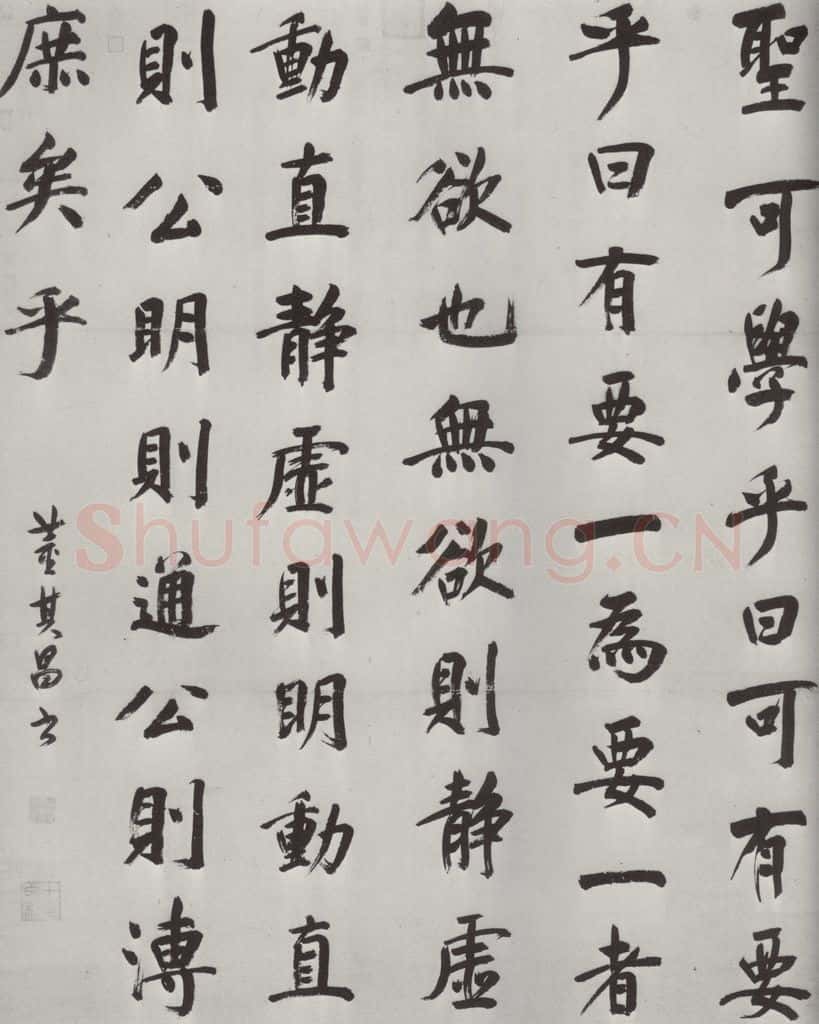 聖可學乎曰可有要
乎曰有要一為要一者
無欲也無欲則静虚
動直静虚則明動直
則公明則通公則溥
庶矣乎
董其昌书
Shufawang.CN